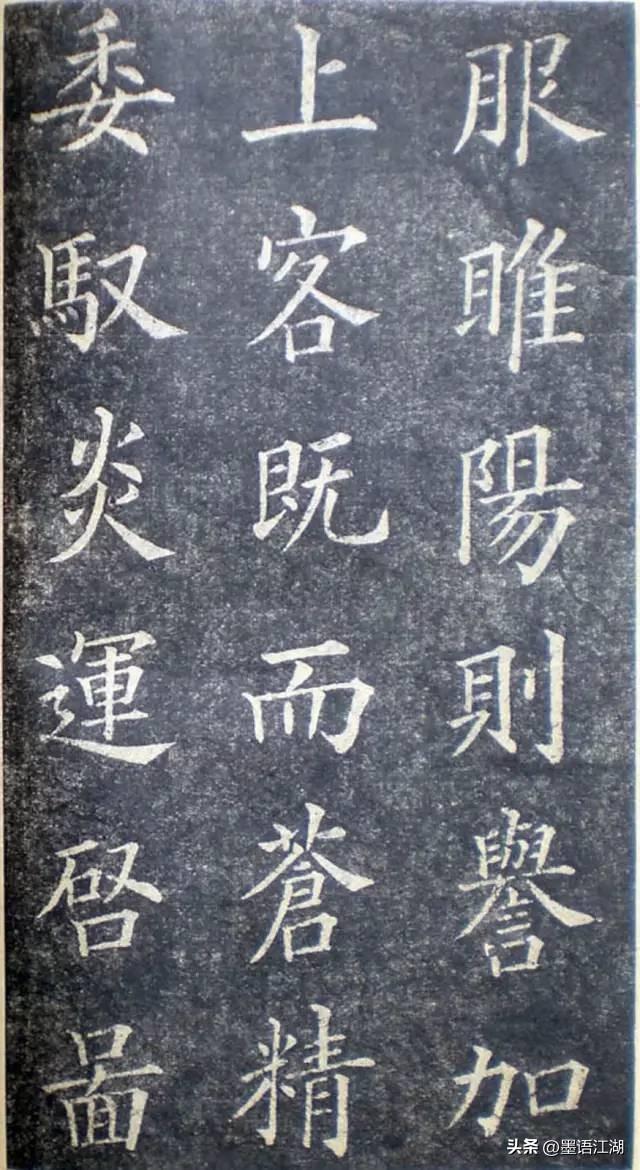 服睢陽則譽加
上客既而蒼精
委馭炎運啓啚
头条 @墨语江湖